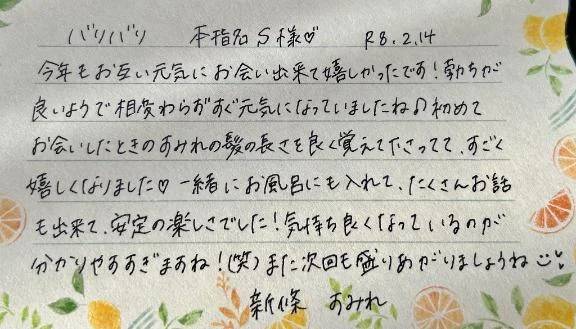 バリバリ 本指名 S様♡ R8.2.14
今年もお互い元気にお会い出来て嬉しかったです！勃ちが
良いようで相変わらずすぐ元気になっていましたね♪初めて
お会いしたときのすみれの髪の長さを良く覚えて下さってて、すごく
嬉しくなりました♡ 一緒にお風呂にも入れて、たくさんお話
も出来て、安定の楽しさでした！気持ち良くなっているのが
分かりやすすぎますね！(笑) また次回も盛りあがりましょうね
新條 すみれ